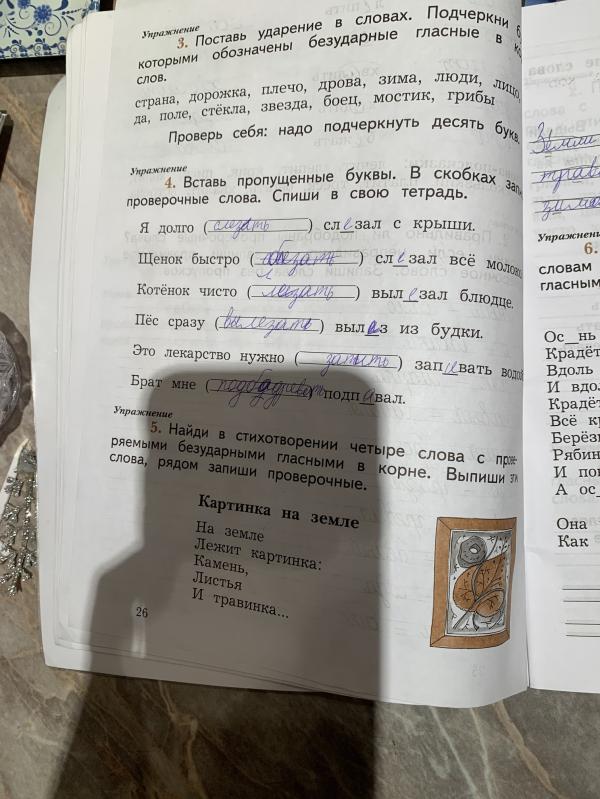 Упражнение
3. Поставь ударение в словах. Подчеркни б
которыми обозначены безударные гласные в ко
слов.
страна, дорожка, плечо, дрова, зима, люди, лицо,
да, поле, стёкла, звезда, боец, мостик, грибы
Проверь себя: надо подчеркнуть десять букв.
Упражнение
4. Вставь пропущенные буквы. В скобках запи
проверочные слова. Спиши в свою тетрадь.
Я долго (слезать) слезал с крыши.
Щенок быстро ( ) слезал всё молоко
Котёнок чисто (лезать) вылезал блюдце.
Пёс сразу (вылезать) вылаз из будки.
Это лекарство нужно ( ) запевать водой
Брат мне ( ) подпавал.
Упражнение
5. Найди в стихотворении четыре слова с прове-
ряемыми безударными гласными в корне. Выпиши эти
слова, рядом запиши проверочные.
Картинка на земле
На земле
Лежит картинка:
Камень,
Листья
И травинка...
26
Земли
трав
зима
Упражнение
6.
словам
гласным
Ос_нь
Крадёт
Вдоль
И вдол
Крадёт
Всё кр
Берёзы
Рябин
И пов
А ос_
Она
Как